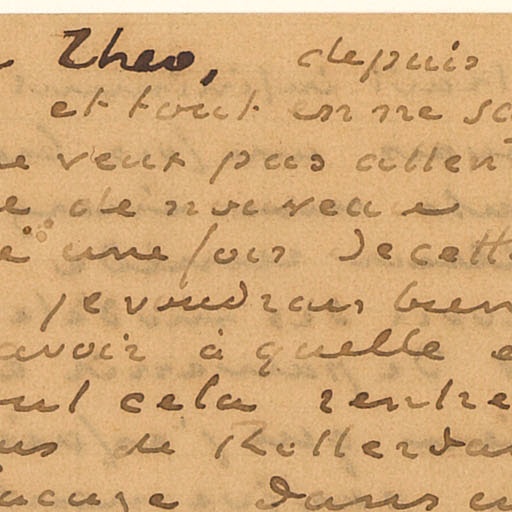 Theo, depuis
et tout en ne sa
ne veux pas atten
de nouveau
une fois De cett
je voudrais bien
avoir à quelle e
tout cela rentre
de Rotterda
dans